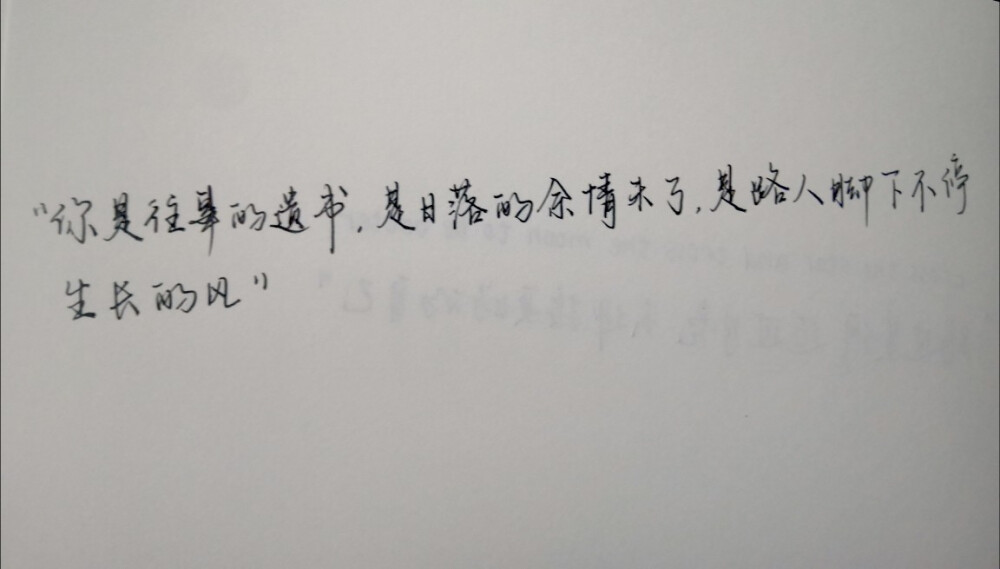 "你是往事的遗书,是日落的余情未了,是路人脚下不停
生长的风"